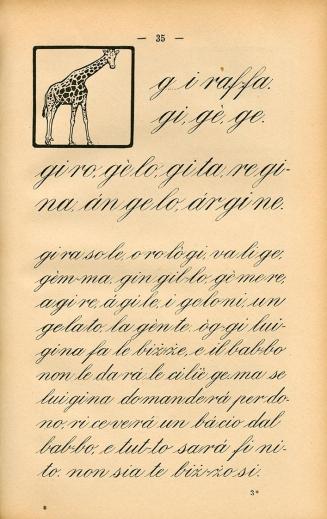 — 35 —
gi ràf-fa.
gi, gè, ge.
gi ro, gè lo, gi ta, re gi-
na, án ge lo, ár gi ne.
gi ra so le, o ro lò gi, va li ge,
gèm-ma, gin gil-lo, gè me re,
a gi re, á gi le, i ge lo ni, un
ge la to, la gèn te. òg-gi lui-
gina fa le biz-ze, e il bab-bo
non le da rá le ci liè ge. ma se
lui gina do man de rá per do-
no, ri ce ve rá un bá cio dal
bab-bo, e tut-to sa rá fi ni-
to. non sia te biz-zo si.
3*
*